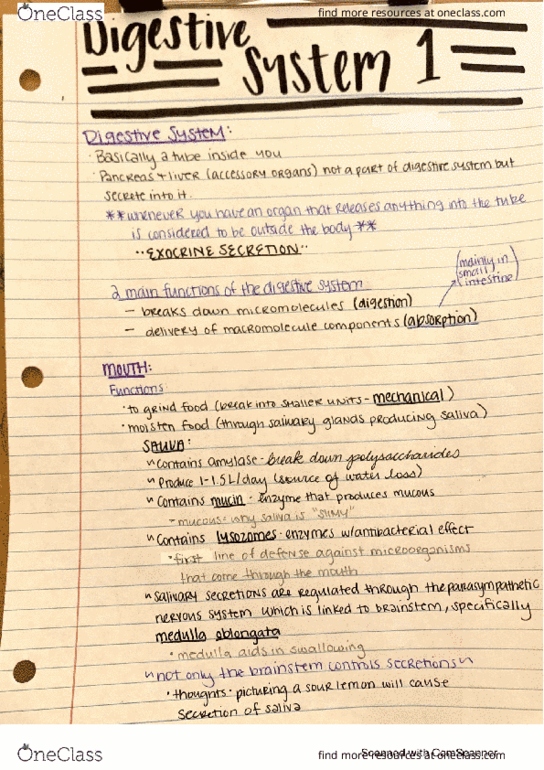 OneClass
find more resources at oneclass.com
Digestive
System 1
Digestive System:
· Basically a tube inside you
· Pancreas + liver (accessory organs) not a part of digestive system but
secrete into it.
**whenever you have an organ that releases anything into the tube
is considered to be outside the body**
··"EXOCRINE SECRETION"··
2 main functions of the digestive system
(mainly in
small
intestine)
- breaks down micromolecules (digestion)
- delivery of macromolecule components (absorption)
MOUTH:
Functions
· to grind food (break into smaller units - mechanical)
· moisten food (through salivary glands producing saliva)
SALIVA:
~ Contains amylase - break down polysaccharides
~ Produce 1-1.5L/day (source of water loss)
~ Contains mucin - enzyme that produces mucous
- mucous: why saliva is "slimy"
~ Contains lysozomes - enzymes w/antibacterial effect
· first line of defense against microorganisms
that come through the mouth
~ salivary secretions are regulated through the parasympathetic
nervous system which is linked to brainstem, specifically
medulla oblongata
· medulla aids in swallowing
~ not only the brainstem controls secretions ~
· thoughts · picturing a sour lemon will cause
secretion of saliva
OneClass
find more resources at oneclass.com
Scanned with CamScanner